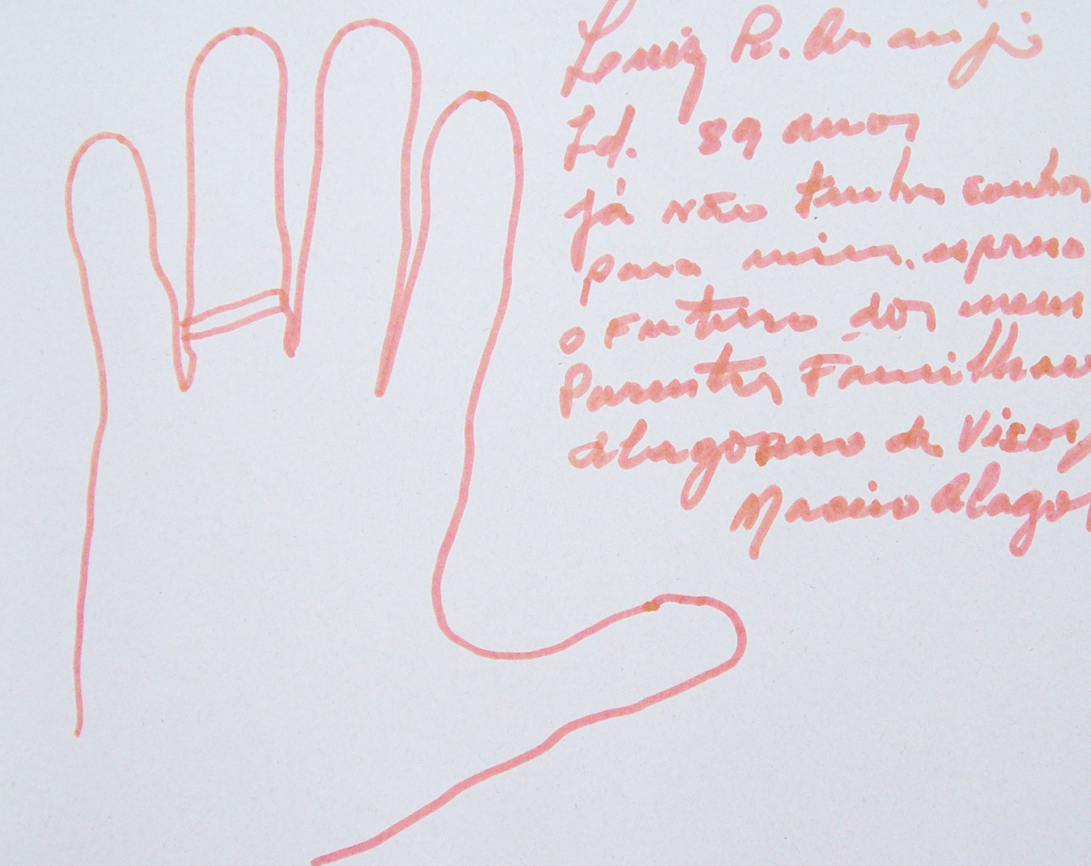 Luiz R. Araujo
Id. 89 anos
já não tenho sonhos
para mim, espero
o Futuro dos meus
Parentes Familhares
alagoano de Viços
Maceio Alago